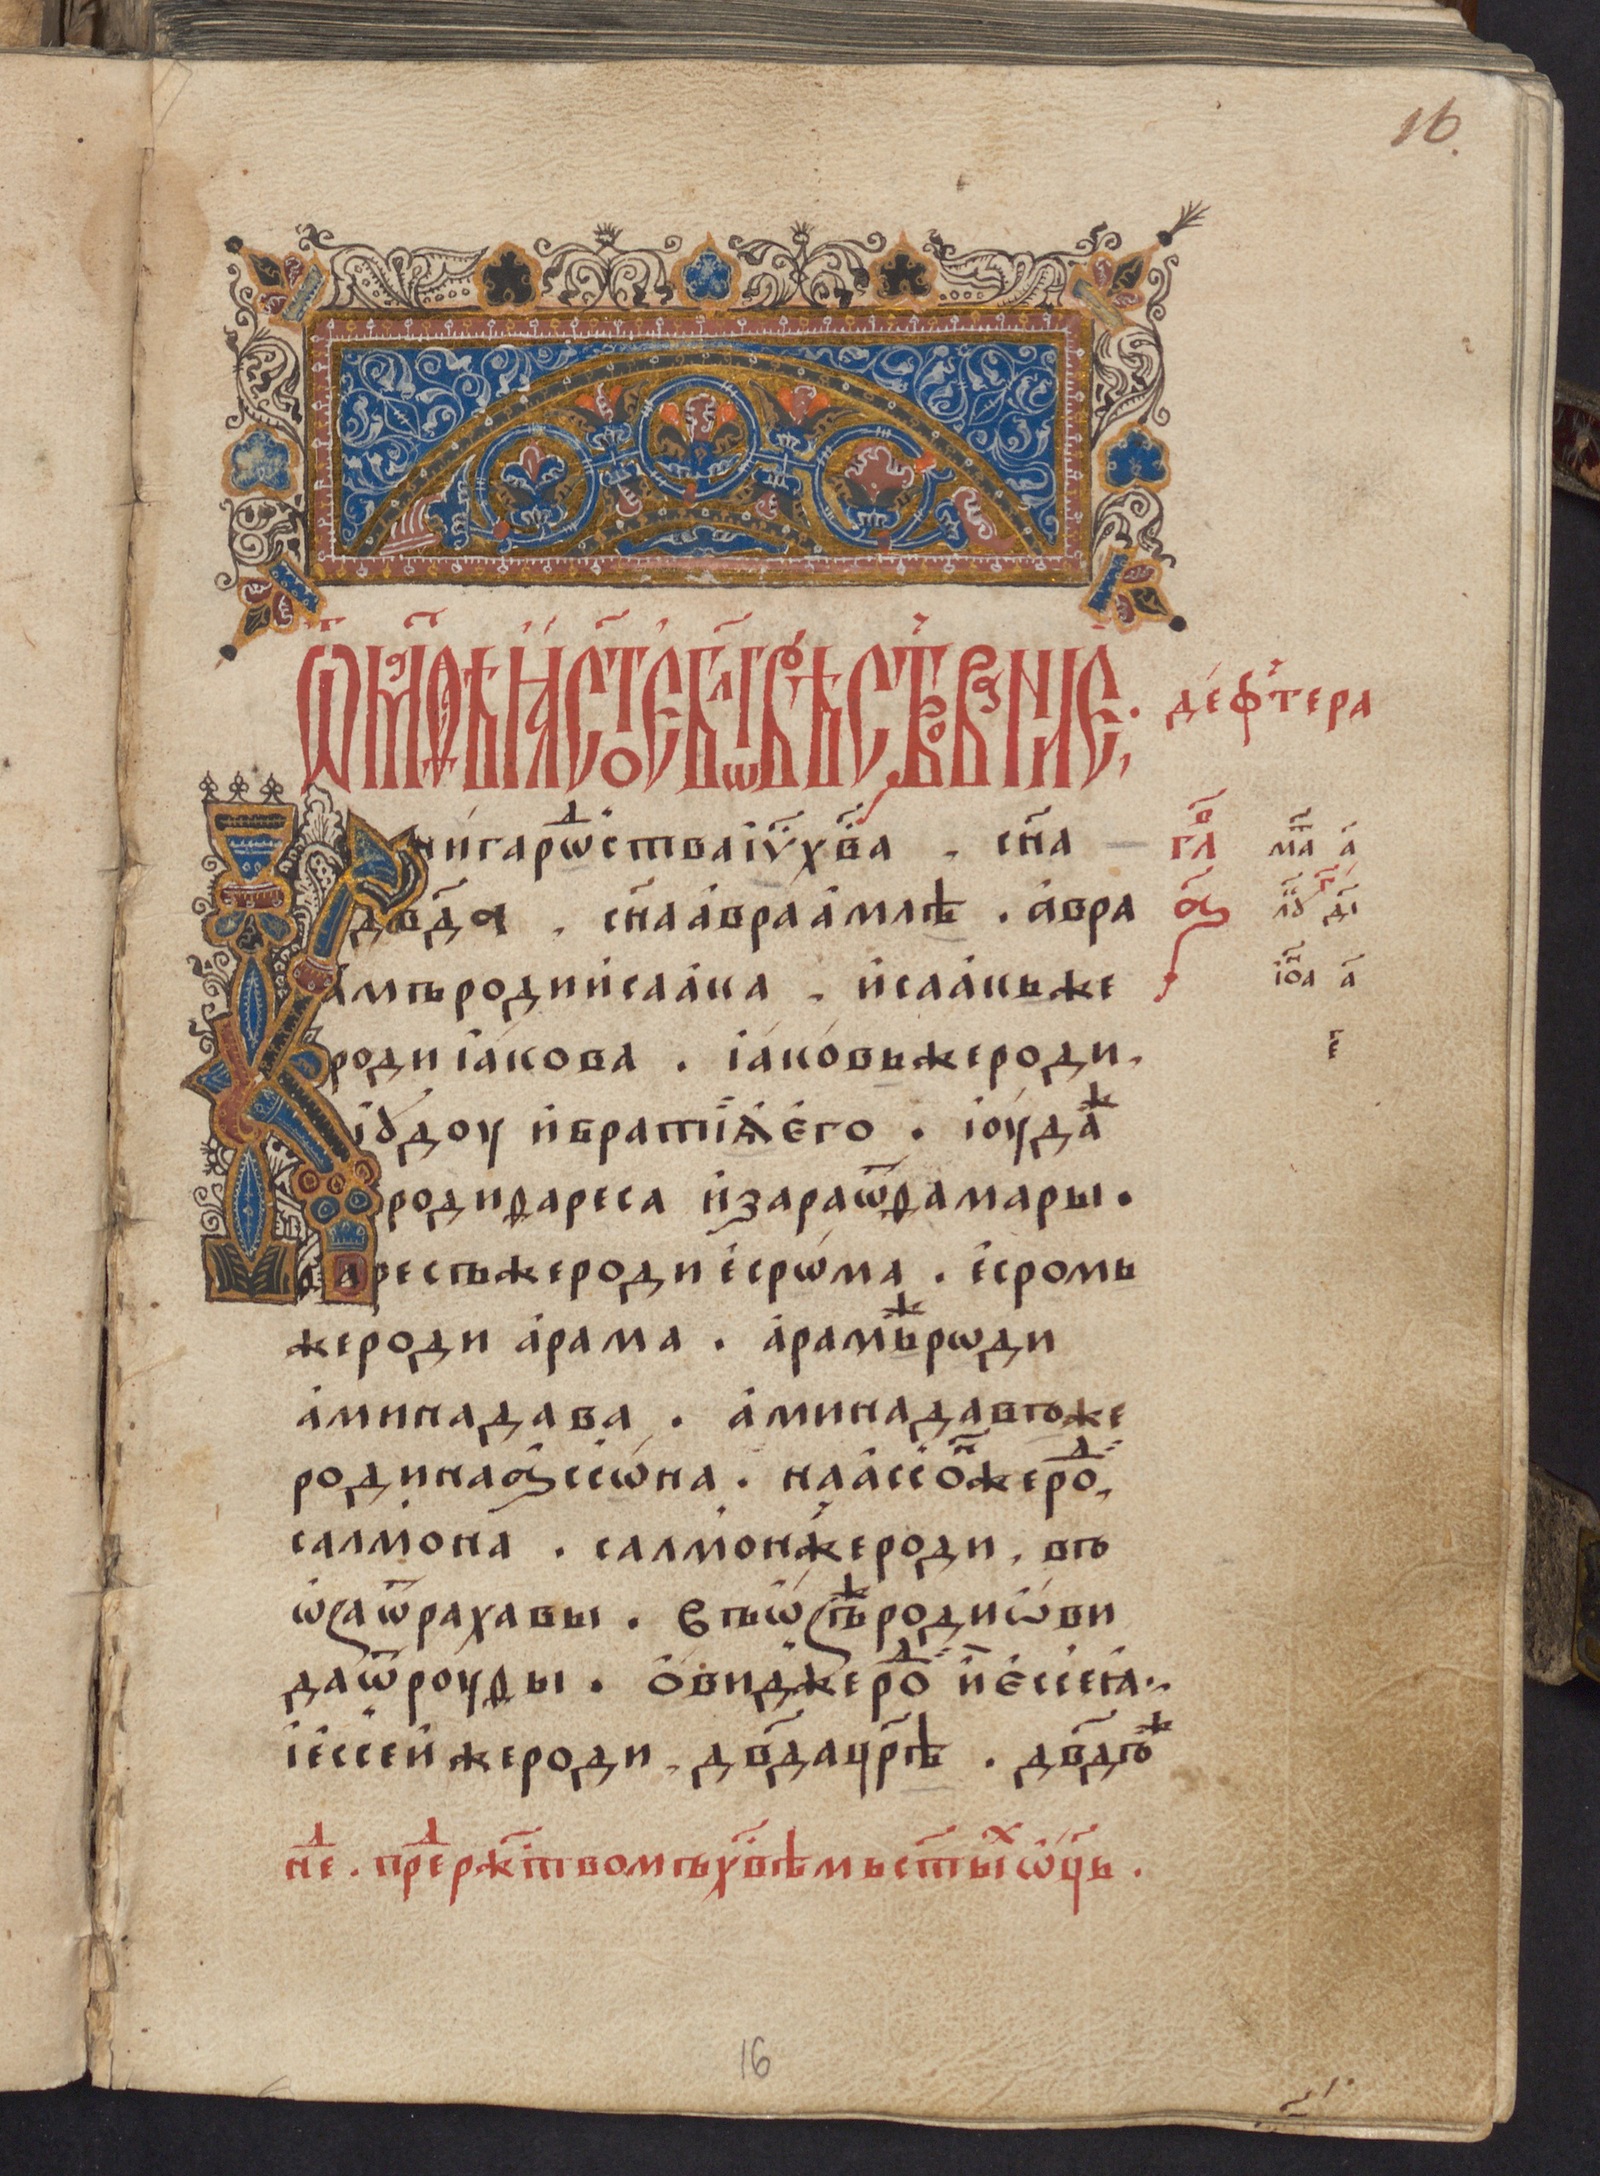 16.
Ѿ маѳѣꙗ ст҃ое бл҃говѣствованїе.
дефтера
Книга рѡⷣства іу҃ хв҃а . сн҃а
дв҃да . сн҃а авраамлѣ . авра
амъ роди исаака . исаакьже
роди іакова . іаковьже роди .
іꙋдоу и братїѧ его . іоуда ж
роди фареса и зара ѿ фамары .
фаресъже роди есрѡма . есромь
же роди арама . арамьж рѡди
аминадава . аминадавъже
роди наассѡна . наассоⷩже роⷣ .
салмона . салмонже роди . въ
ѡза ѿ рахавы . Въѡзъж роди ѡви
да ѿ роуфы . Овидже роⷣ иессеꙗ .
іессей же роди . дв҃да цр҃ѣ . дв҃дъж
гл҃
а҃
мⷴ҃а а҃
лꙋ҃ гі҃
іѡ҃а а҃
е҃
неⷣ . преⷣ ржⷭтвомъ хв҃ѣмь ст҃ыⷯ ѡц҃ь .
16